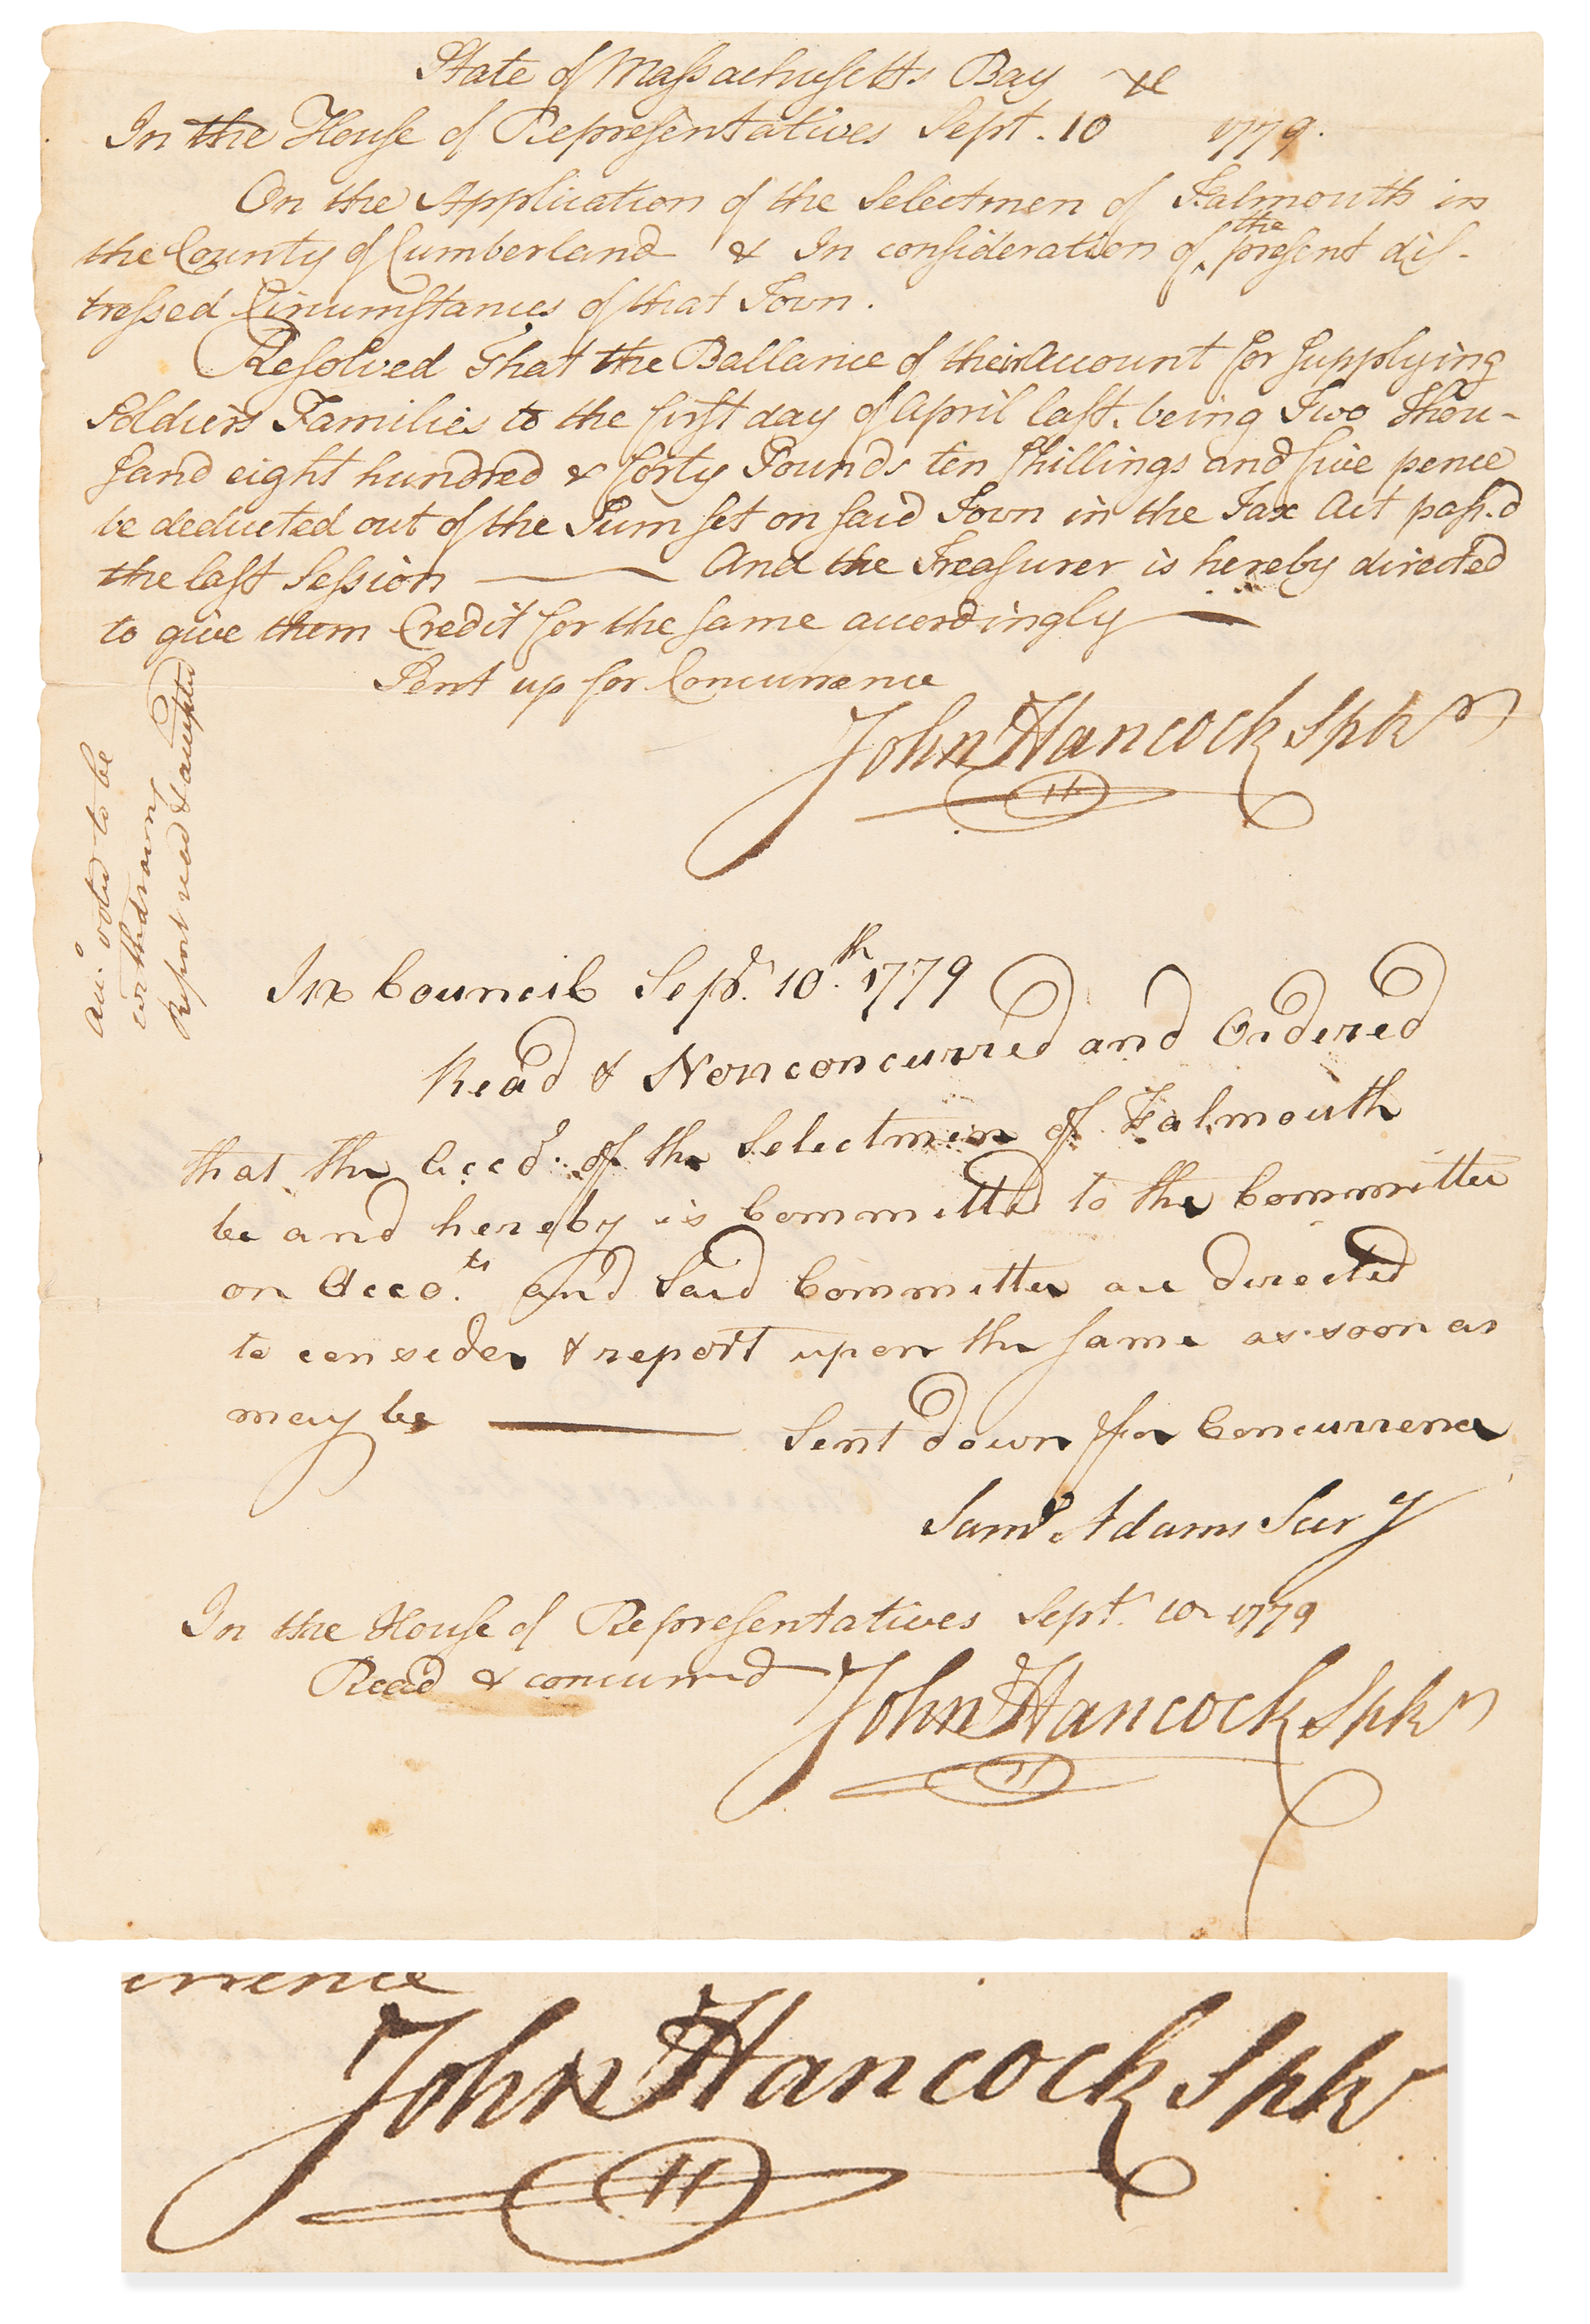 State of Massachusetts Bay &c
In the House of Representatives Sept. 10 1779.
On the Application of the Selectmen of Falmouth in
the County of Cumberland & In consideration of the present dis-
tressed Circumstances of that Town.
Resolved That the Ballance of their Account for supplying
Soldiers Families to the first day of April last. being Two Thou-
sand eight hundred & forty Pounds ten Shillings and five pence
be deducted out of the Sum set on said Town in the Tax Act pass.d
the last Session ——— And the Treasurer is hereby directed
to give them Credit for the same accordingly —
Sent up for Concurrence
John Hancock Spkr
voted to be
withdrawn
Report read & accepted
In Council Sepr. 10th. 1779
Read & Nonconcurred and Ordered
that the Acco. of the Selectmen of Falmouth
be and hereby is Committed to the Committee
on Acco.ts and Said Committee are directed
to consider & report upon the same as soon as
may be ——— Sent down for Concurrence
Saml Adams Secry
In the House of Representatives Sept. 10 1779
Read & concurred John Hancock Spkr
urrence
John Hancock Spkr